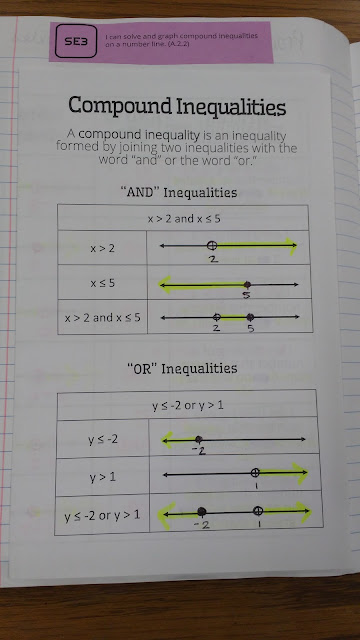 SE3
I can solve and graph compound inequalities
on a number line. (A.2.2)
Compound Inequalities
A compound inequality is an inequality
formed by joining two inequalities with the
word "and" or the word "or."
"AND" Inequalities
x > 2 and x ≤ 5
x > 2
2
x ≤ 5
5
x > 2 and x ≤ 5
2 5
"OR" Inequalities
y ≤ -2 or y > 1
y ≤ -2
-2
y > 1
1
y ≤ -2 or y > 1
-2 1